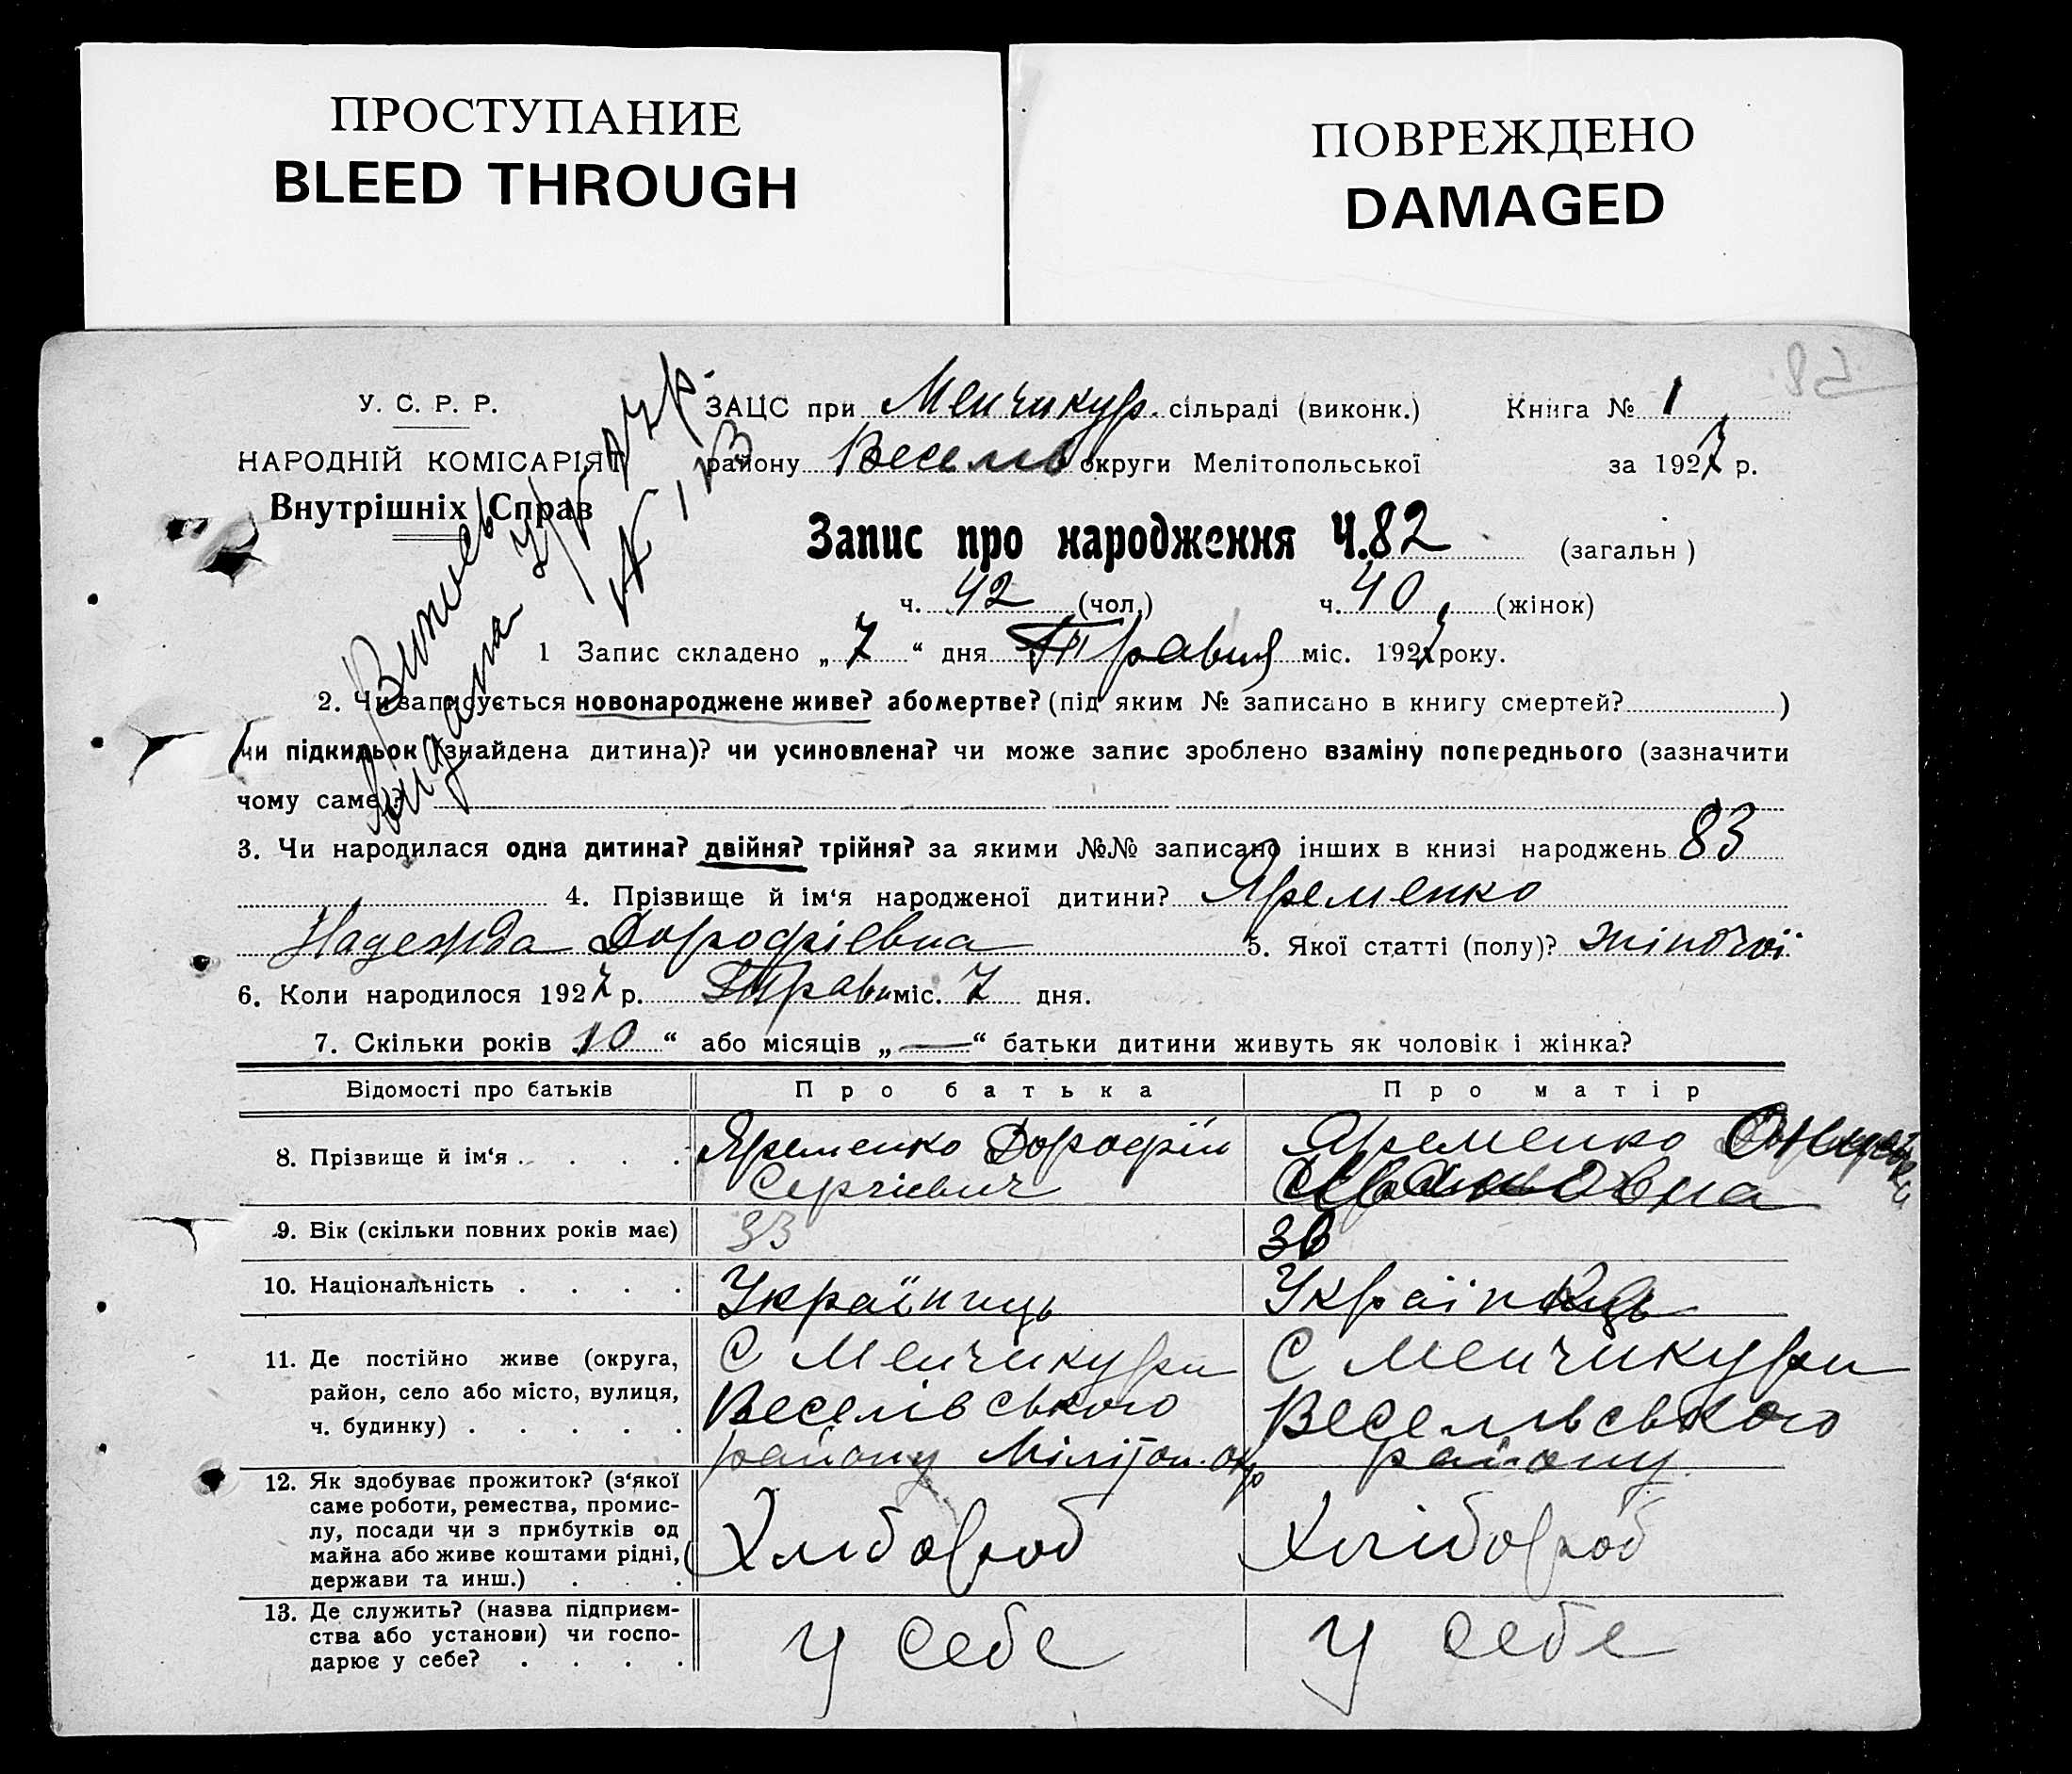 ПРОСТУПАНИЕ
BLEED THROUGH
ПОВРЕЖДЕНО
DAMAGED
У. С. Р. Р.
НАРОДНІЙ КОМІСАРІЯТ
Внутрішніх Справ
ЗАЦС при Менчикур. сільраді (виконк.) Книга № 1
району Весел округи Мелітопольської за 1927 р.
Запис про народження Ч. 82 (загальн)
ч. 42 (чол.) ч. 40 (жінок)
1 Запис складено „ 7 “ дня Травня міс. 1927 року.
2. Чи записується новонароджене живе? або мертве? (під яким № записано в книгу смертей? )
чи підкидьок (знайдена дитина)? чи усиновлена? чи може запис зроблено взаміну попереднього (зазначити
чому саме)?
3. Чи народилася одна дитина? двійня? трійня? за якими №№ записано інших в книзі народжень 83
4. Прізвище й ім‘я народженої дитини? Яременко
Надежда Дорофіевна 5. Якої статті (полу)? жіночої
6. Коли народилося 1927 р. Травн міс. 7 дня.
7. Скільки років „ 10 “ або місяців „ — “ батьки дитини живуть як чоловік і жінка?
Відомості про батьків Про батька Про матір
8. Прізвище й ім‘я . . . . Яременко Дорофій Яременко
Сергієвич
9. Вік (скільки повних років має) 33
10. Національність . . . . Українць Українка
11. Де постійно живе (округа, район, село або місто, вулиця, ч. будинку) . . . . .
С Менчикури
Веселівського
району Меліт. окр
С Менчикури
Веселівського
району
12. Як здобуває прожиток? (з‘якої
саме роботи, ремества, промис-
лу, посади чи з прибутків од
майна або живе коштами рідні,
держави та инш.) . . .
Хлібороб Хлібороб
13. Де служить? (назва підприєм-
ства або установи) чи госпо-
дарює у себе? . . . .
у себе у себе